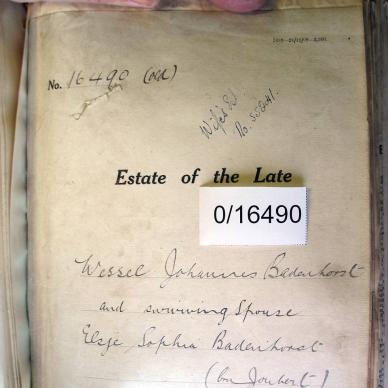 No. 16490 (old)
Wife's D/
No. 55041.
Estate of the Late
0/16490
Wessel Johannes Badenhorst
and surviving Spouse
Elsje Sophia Badenhorst
(bn Joubert)